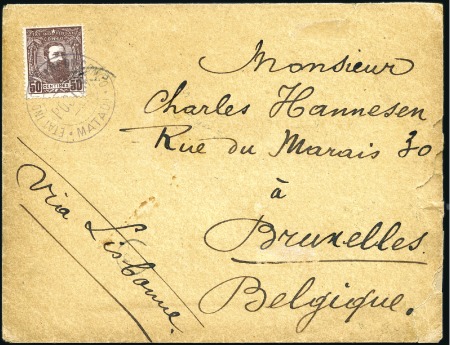 50 CENTIMES 50
MATADI
ETAT IND
Monsieur
Charles Hannesen
Rue du Marais 30
à
Bruxelles
Belgique.
Via Lisbonne.